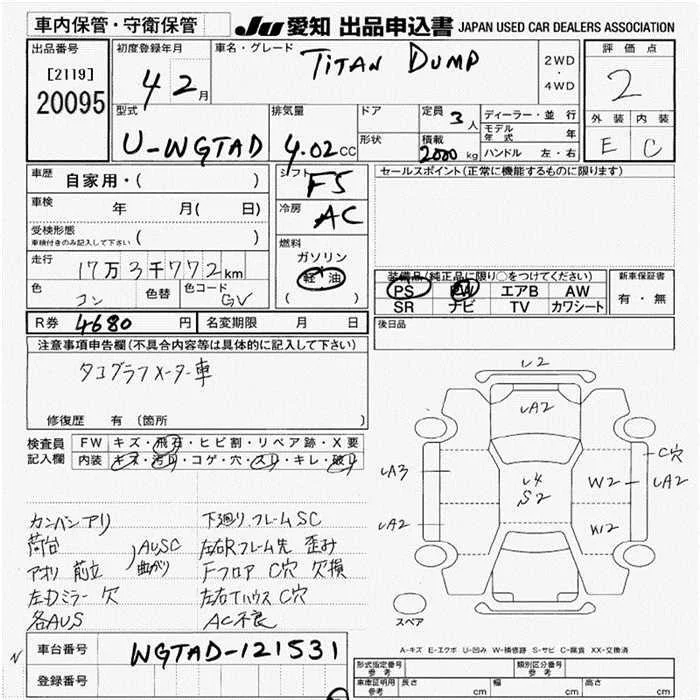 車内保管・守衛保管
JU 愛知 出品申込書 JAPAN USED CAR DEALERS ASSOCIATION
出品番号
[2119]
20095
初度登録年月
42月
車名・グレード
TITAN DUMP
2WD
・
4WD
評価点
2
外装 内装
E C
型式
U-WGTAD
排気量
4.02cc
ドア
形状
定員 3人
積載 2000kg
ディーラー・並行
モデル年式 年
ハンドル 左・右
車歴 自家用・( )
車検 年 月( 日)
受検形態
車検付きのみ記入して下さい ( )
走行 17万3千772km
色 コン 色替 色コード GV
シフト F5
冷房 AC
燃料
ガソリン
軽・油
( )
セールスポイント(正常に機能するものに限ります)
装備品(純正品に限り○をつけてください)
PS PW エアB AW
SR ナビ TV カワシート
新車保証書
有・無
後日品
R券 4680円 名変期限 月 日
注意事項申告欄(不具合内容等は具体的に記入して下さい)
タコグラフメーター車
修復歴 有 (箇所 )
検査員
記入欄
FW キズ・飛石・ヒビ割・リペア跡・X要
内装 キズ・汚れ・コゲ・穴・スレ・キレ・破れ
カンバンアリ
荷台
アオリ 前立
AUSC
曲がり
左Dミラー 欠
各AUS
下廻り フレームSC
左右Rフレーム先 歪み
Fフロア C穴 欠損
左右Tハウス C穴
AC不良
U2
UA2
UA3
UA2
U4
S2
W2
W2
C穴
UA2
スペア
A-キズ E-エクボ U-凹み W-補修跡 S-サビ C-腐食 XX-交換済
車台番号 WGTAD-121531
登録番号
形式指定番号
参考
類別区分番号
参考
車庫証明用
参考
長さ cm 幅 cm 高さ cm